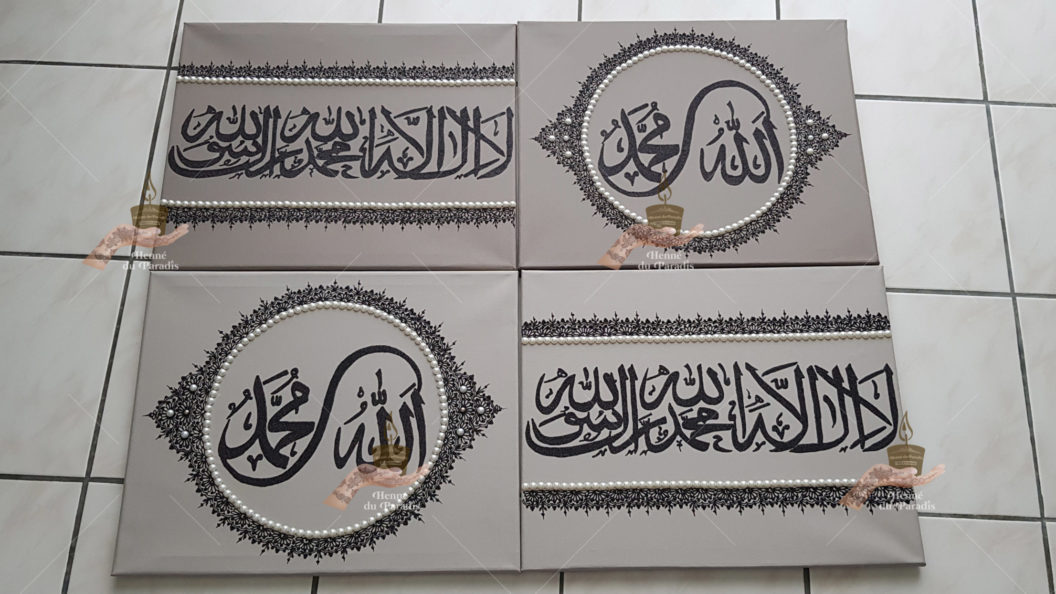 لا إله إلا الله محمد رسول الله
الله محمد
الله محمد
لا إله إلا الله محمد رسول الله
Henné
du Paradis
Henné
du Paradis
Henné
du Paradis
Henné
du Paradis